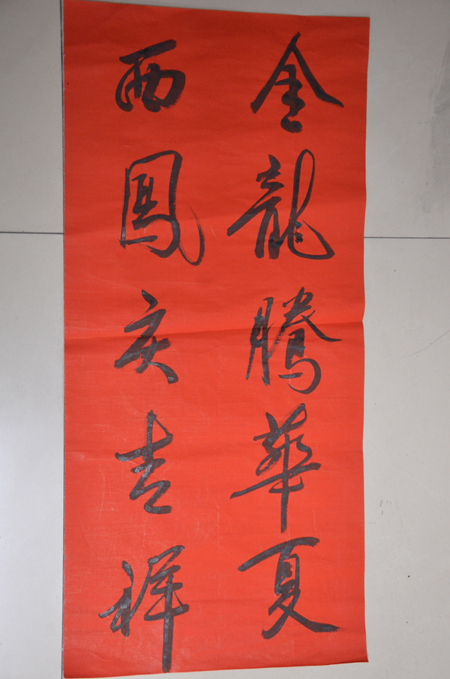 金龍騰華夏
西鳳庆吉祥